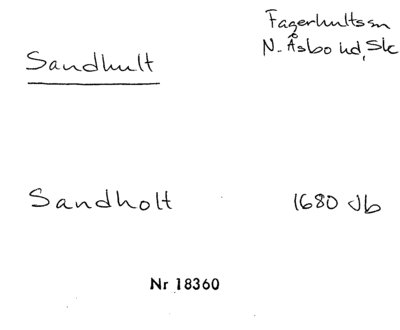 Fagerhultssn
N. Åsbo hd, Sk
Sandhult
Sandholt 1680 Jb
Nr 18360